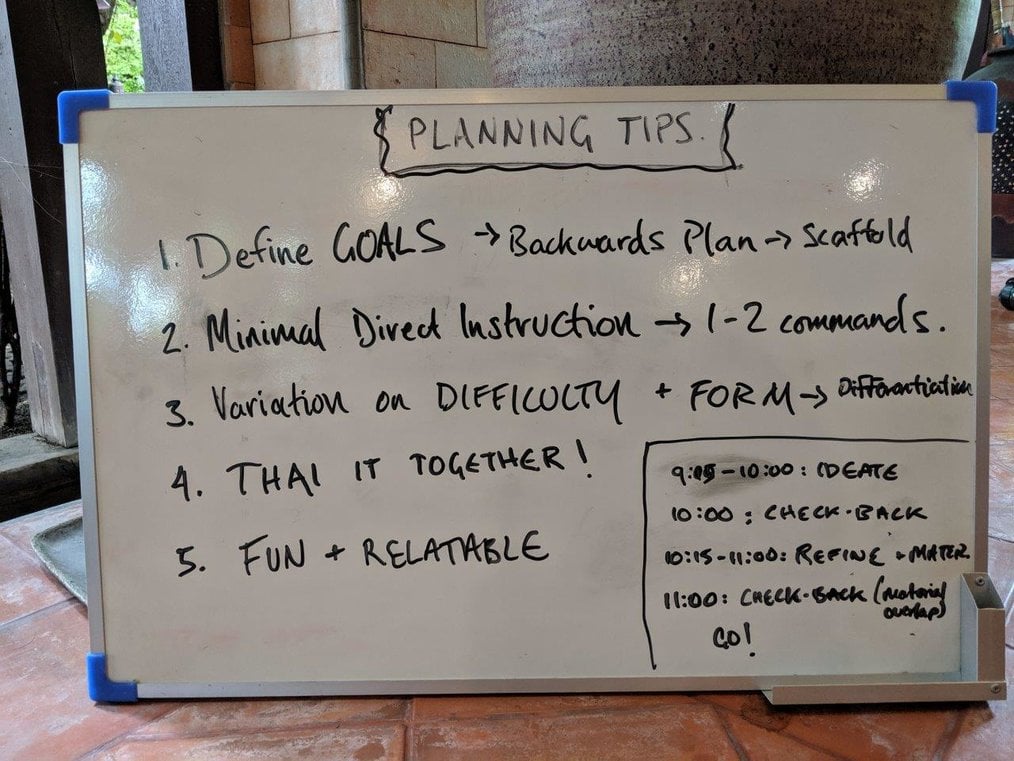 PLANNING TIPS.
1. Define GOALS → Backwards Plan → Scaffold
2. Minimal Direct Instruction → 1-2 commands.
3. Variation on DIFFICULTY + FORM → Differentiation
4. THAI IT TOGETHER!
5. FUN + RELATABLE
-10:00: IDEATE
10:00: CHECK-BACK
10:15-11:00: REFINE + MATER
11:00: CHECK-BACK (material
overlap)
GO!